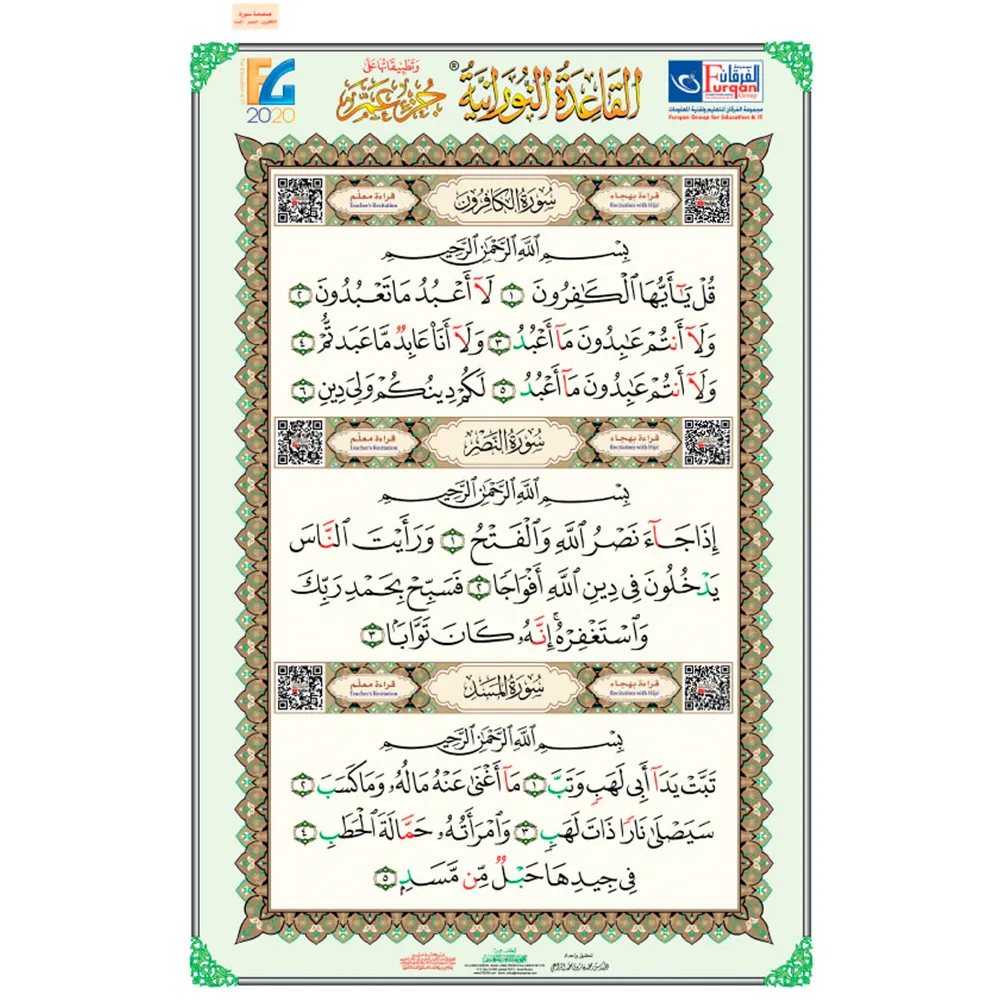 صفحة سورة
الكافرون - النصر - المسد
القاعدة النورانية ®
وتطبيقاتها على
جزء عم
FG
2020
مجموعة
الفرقان
Furqan
Group
مجموعة الفرقان للتعليم وتقنية المعلومات
Furqan Group for Education & IT
قراءة بهجاء
Recitation with Hija'
سورة الكافرون
قراءة معلم
Teacher's Recitation
بِسْمِ ٱللَّهِ ٱلرَّحْمَٰنِ ٱلرَّحِيمِ
قُلْ يَٰٓأَيُّهَا ٱلْكَٰفِرُونَ ١ لَآ أَعْبُدُ مَا تَعْبُدُونَ ٢
وَلَآ أَنتُمْ عَٰبِدُونَ مَآ أَعْبُدُ ٣ وَلَآ أَنَا۠ عَابِدٌ مَّا عَبَدتُّمْ ٤
وَلَآ أَنتُمْ عَٰبِدُونَ مَآ أَعْبُدُ ٥ لَكُمْ دِينُكُمْ وَلِىَ دِينِ ٦
قراءة بهجاء
Recitation with Hija'
سورة النصر
قراءة معلم
Teacher's Recitation
بِسْمِ ٱللَّهِ ٱلرَّحْمَٰنِ ٱلرَّحِيمِ
إِذَا جَآءَ نَصْرُ ٱللَّهِ وَٱلْفَتْحُ ١ وَرَأَيْتَ ٱلنَّاسَ
يَدْخُلُونَ فِى دِينِ ٱللَّهِ أَفْوَاجًا ٢ فَسَبِّحْ بِحَمْدِ رَبِّكَ
وَٱسْتَغْفِرْهُ ۚ إِنَّهُۥ كَانَ تَوَّابًۢا ٣
قراءة بهجاء
Recitation with Hija'
سورة المسد
قراءة معلم
Teacher's Recitation
بِسْمِ ٱللَّهِ ٱلرَّحْمَٰنِ ٱلرَّحِيمِ
تَبَّتْ يَدَآ أَبِى لَهَبٍ وَتَبَّ ١ مَآ أَغْنَىٰ عَنْهُ مَالُهُۥ وَمَا كَسَبَ ٢
سَيَصْلَىٰ نَارًا ذَاتَ لَهَبٍ ٣ وَٱمْرَأَتُهُۥ حَمَّالَةَ ٱلْحَطَبِ ٤
فِى جِيدِهَا حَبْلٌ مِّن مَّسَدٍۭ ٥